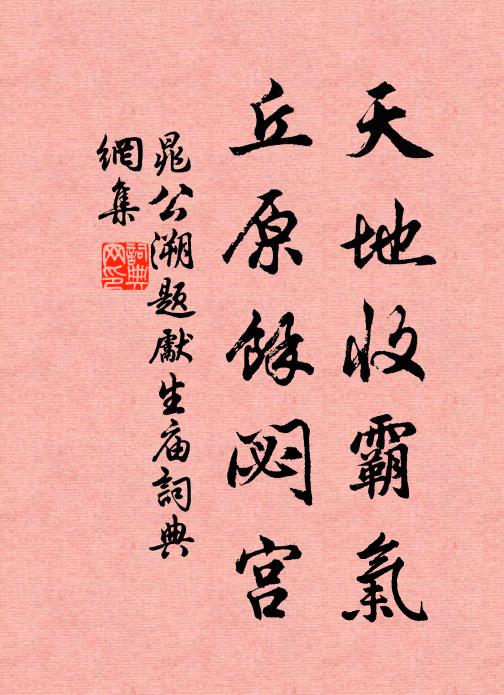 天地收霸氣
丘原餘閟宫
晁公溯題獻生庙詞典
網集
詞典
网印